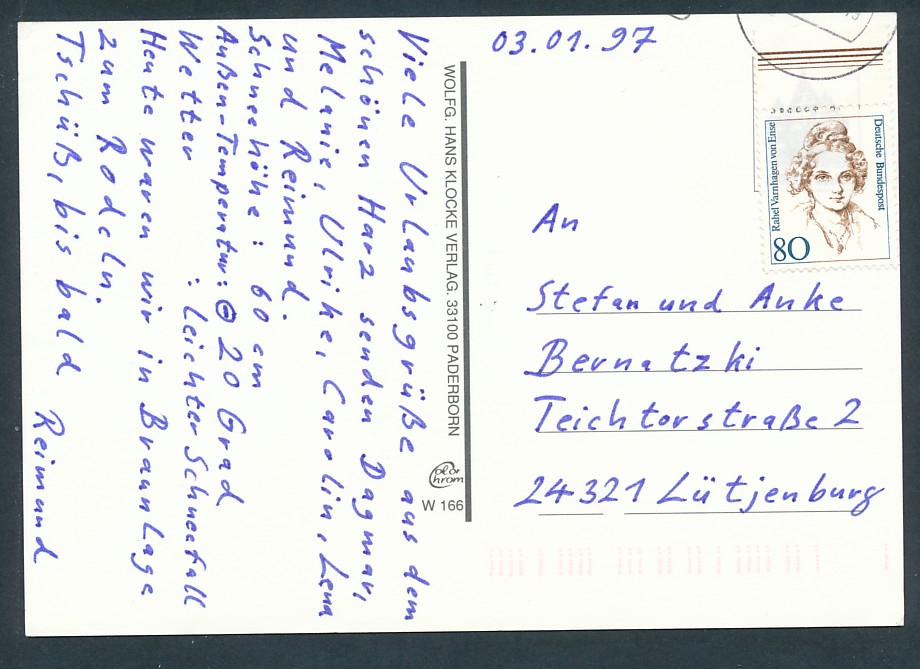 Viele Urlaubsgrüße aus dem
schönen Harz senden Dagmar,
Melanie, Ulrike, Carolin, Lena
und Reimund.
Schneehöhe: 60 cm
Außen-Temperatur: ⊖ 20 Grad
Wetter : leichter Schneefall
Heute waren wir in Braunlage
zum Rodeln.
Tschüß, bis bald Reimund
WOLFG. HANS KLOCKE VERLAG. 33100 PADERBORN
Color Chrom
W 166
03.01.97
Deutsche Bundespost
Rahel Varnhagen von Ense
80
An
Stefan und Anke
Bernatzki
Teichtorstraße 2
24321 Lütjenburg